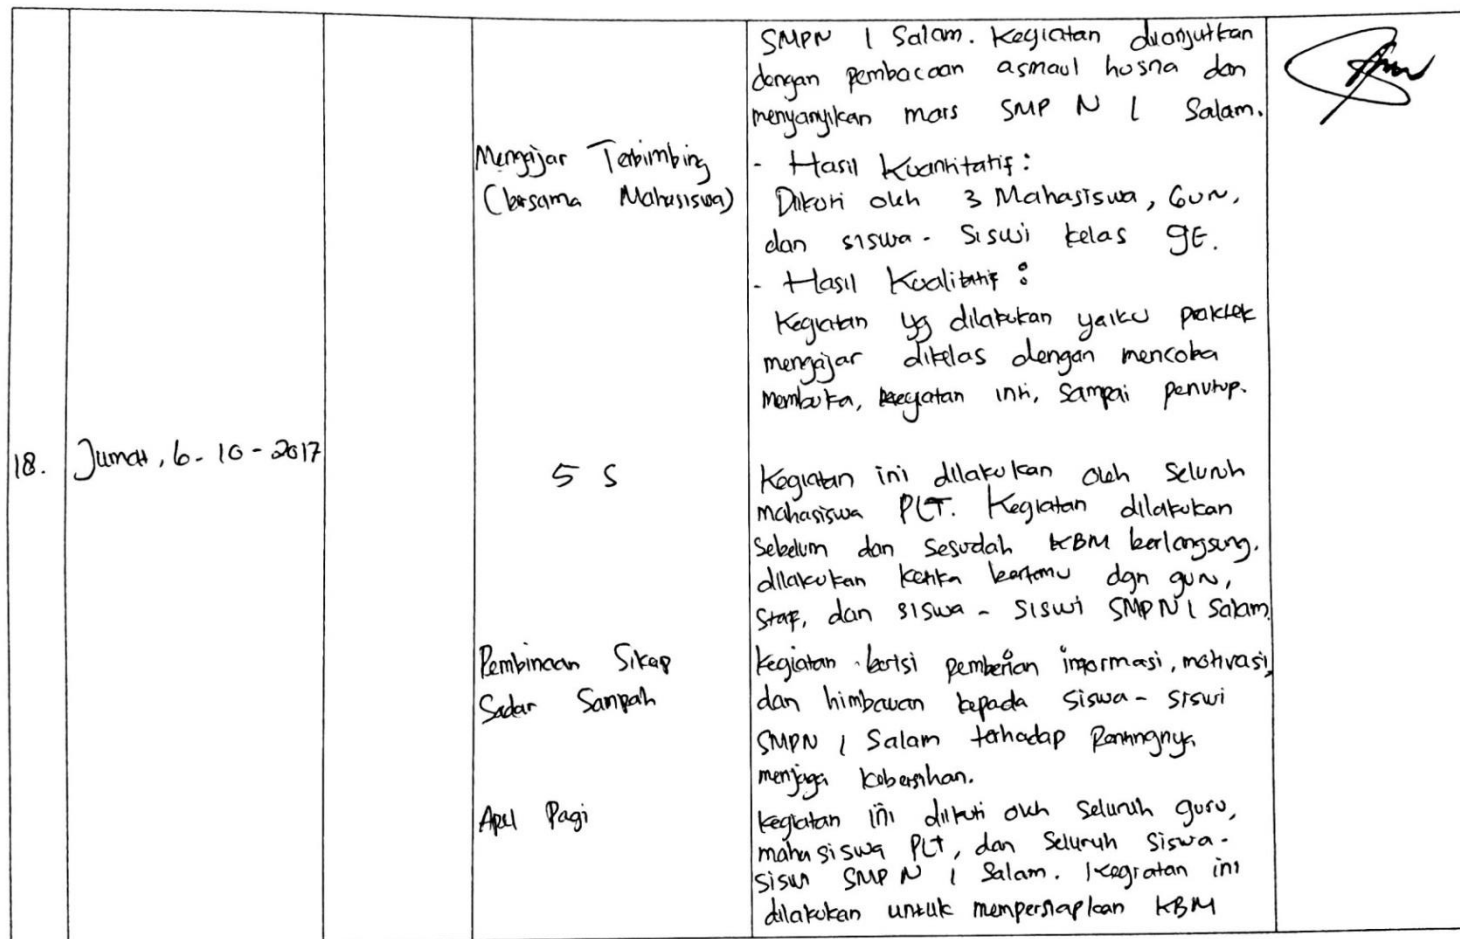 SMPN 1 Salam. Kegiatan dilanjutkan
dengan pembacaan asmaul husna dan
menyanyikan mars SMP N 1 Salam.
Mengajar Terbimbing
(bersama Mahasiswa)
- Hasil Kuantitatif :
Diikuti oleh 3 Mahasiswa, Guru,
dan siswa - Siswi kelas 9E.
- Hasil Kualitatif :
Kegiatan yg dilakukan yaitu praktek
mengajar dikelas dengan mencoba
membuka, kegiatan inti, Sampai penutup.
18. Jumat, 6-10-2017
5 S
Kegiatan ini dilakukan oleh Seluruh
mahasiswa PLT. Kegiatan dilakukan
Sebelum dan Sesudah KBM berlangsung.
dilakukan ketika bertemu dgn guru,
Staf, dan siswa - siswi SMPN 1 Salam.
Pembinaan Sikap
Sadar Sampah
Kegiatan berisi pemberian informasi, motivasi,
dan himbauan kepada Siswa - siswi
SMPN 1 Salam terhadap Pentingnya
menjaga kebersihan.
Apel Pagi
Kegiatan ini diikuti oleh Seluruh guru,
mahasiswa PLT, dan Seluruh Siswa-
siswi SMP N 1 Salam. Kegiatan ini
dilakukan untuk mempersiapkan KBM